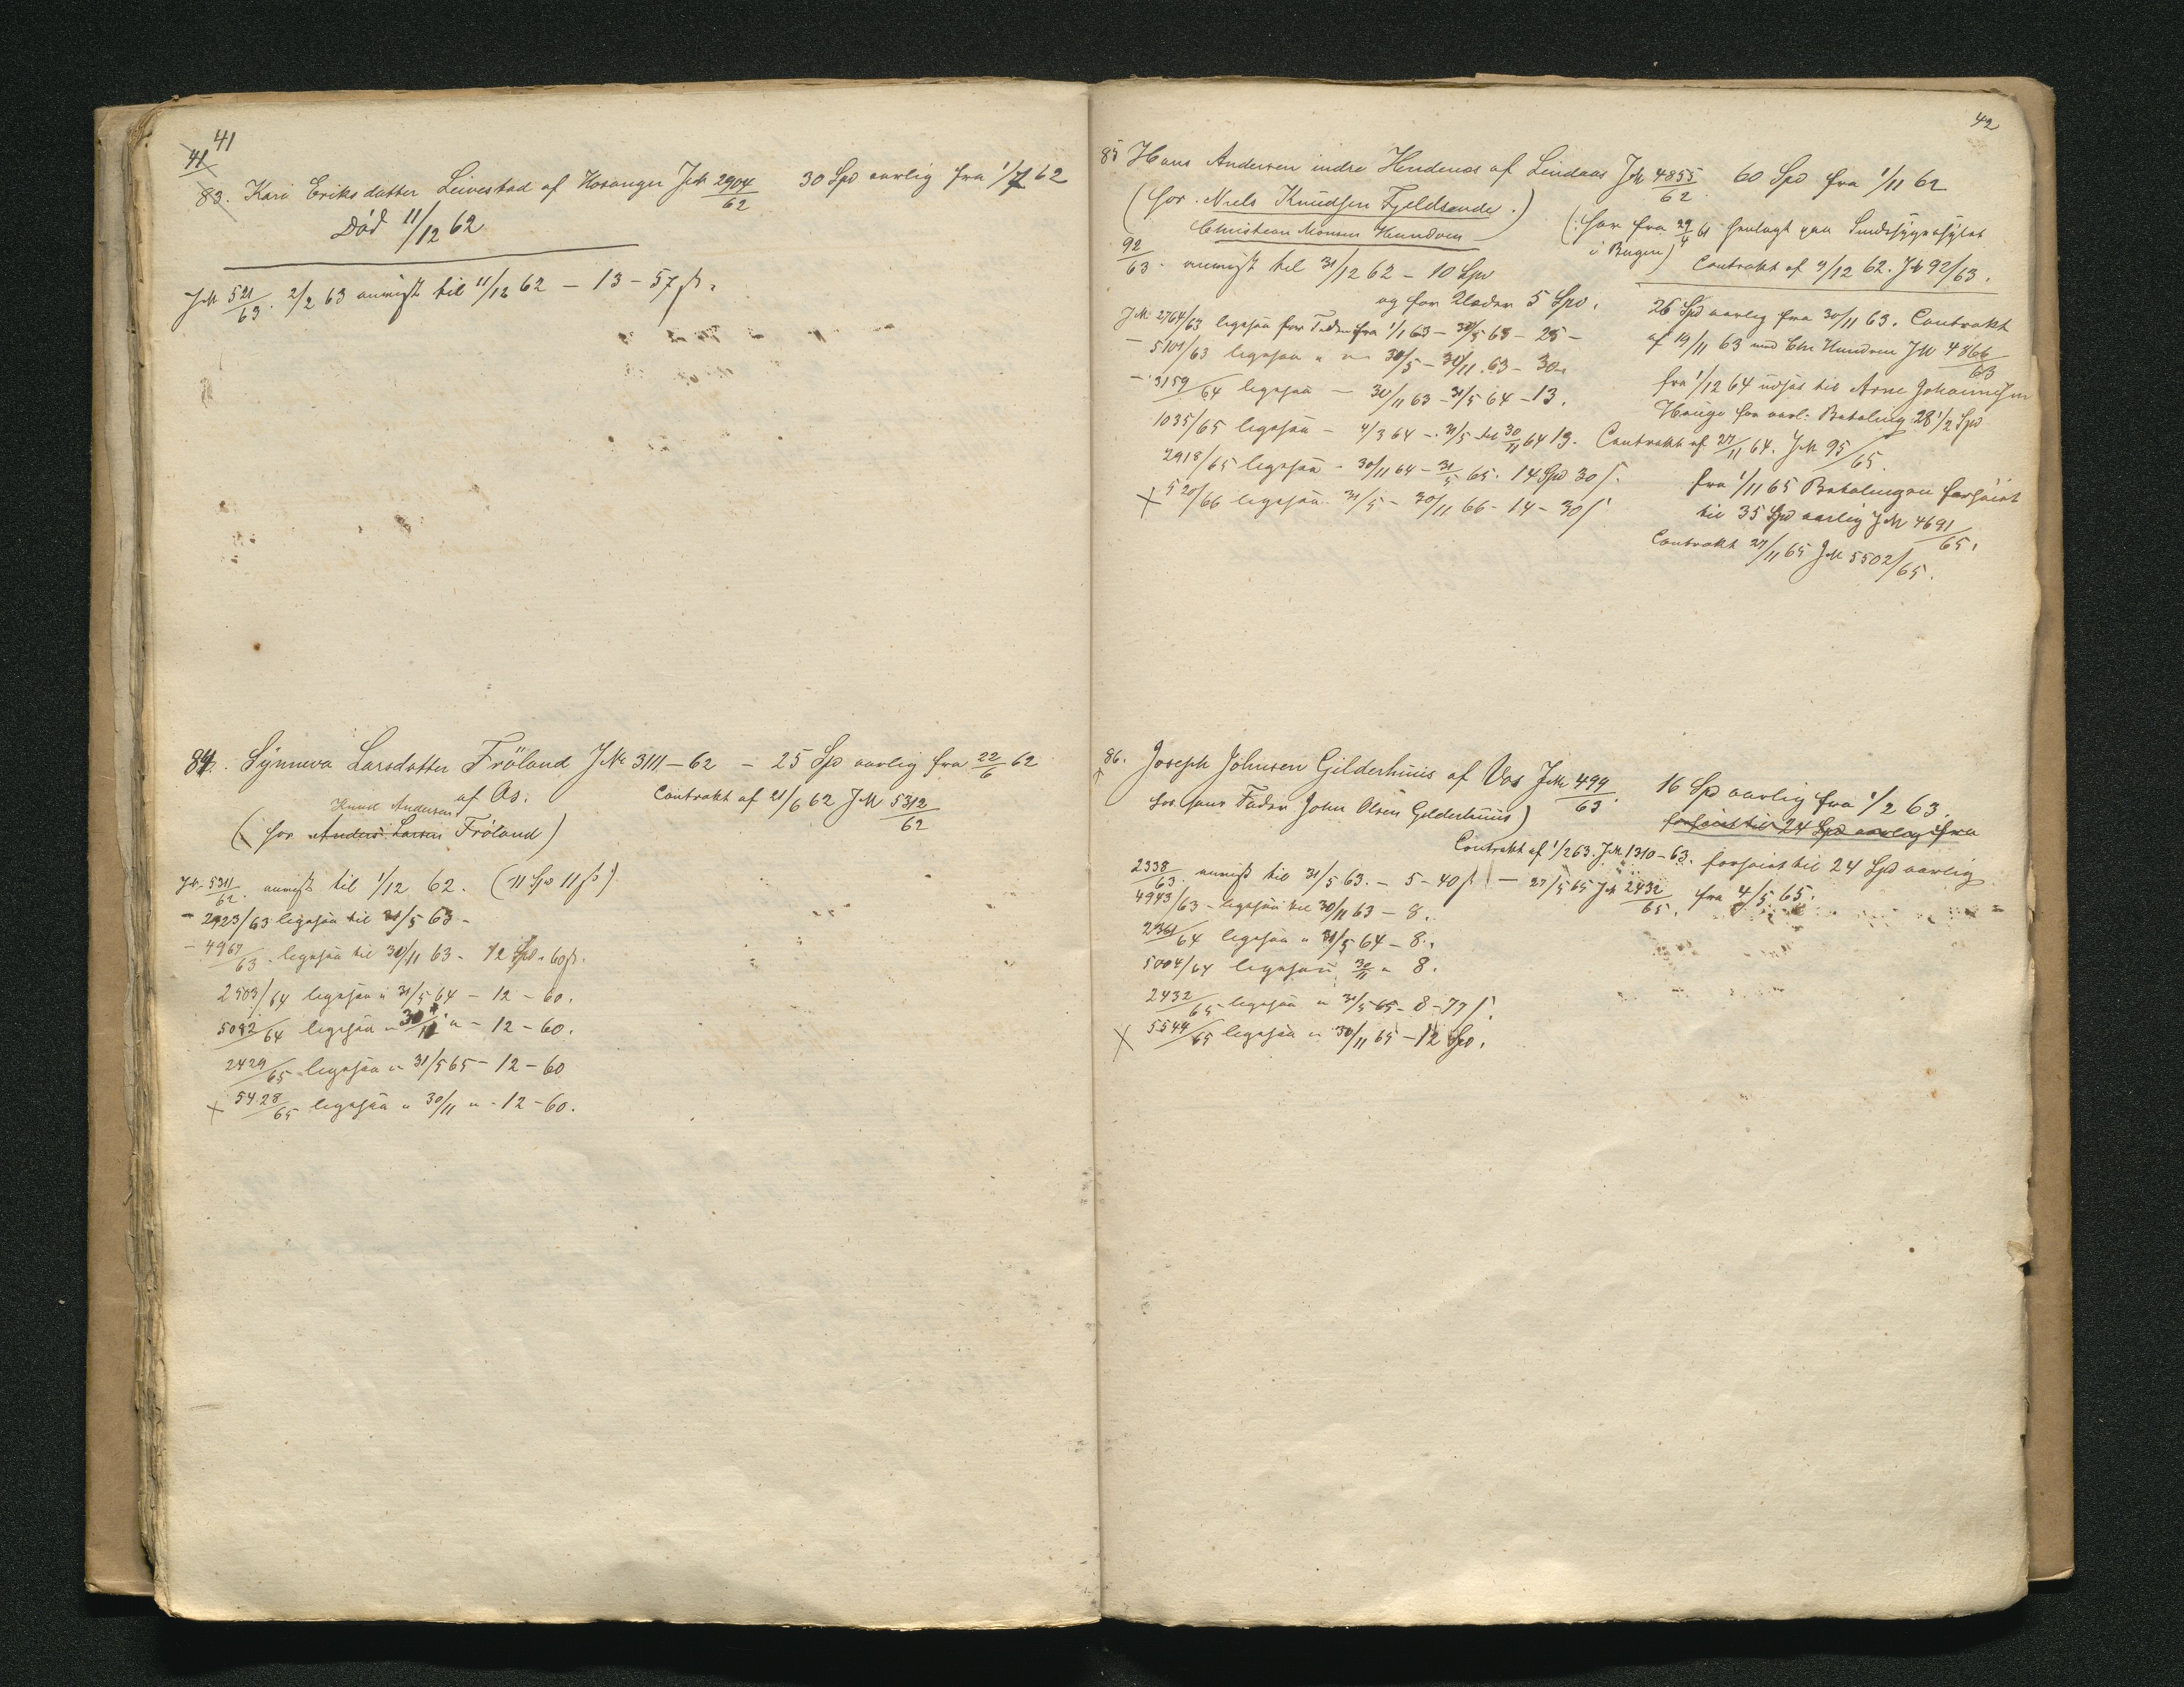 41
41
83. Kari Eriksdatter Leivestad af Hosanger J№ 2904/62 30 Spd aarlig fra 1/7 62
Död 11/12 62
J№ 521/63. 2/2 63 anvist til 11/12 62 - 13 - 57 ß.
84. Synneva Larsdatter Fröland J№ 3111-62 - 25 Spd aarlig fra 22/6 62
af Os. Contrakt af 21/6 62 J№ 5312/62
Knud Andersen
(hos Anders Larsen Fröland)
J№ 5311/62. anvist til 1/12 62. (11 Spd 11 ß)
- 2923/63 ligesaa til 31/5 63 -
- 4967/63 - ligesaa til 30/11 63 - 12 Spd. 60 ß.
2503/64 ligesaa " 31/5 64 - 12 - 60.
5082/64 ligesaa " 30/11 " - 12 - 60.
2429/65 ligesaa " 31/5 65 - 12 - 60
+ 5428/65 ligesaa " 30/11 " - 12 - 60.
42
85 Hans Andersen indre Hendenes af Lindaas J№ 4855/62 60 Spd fra 1/11 62
(hos Niels Knudsen Fjeldsende.)
Christian Monsen Hundven
(har fra 29/4 61 henlagt paa Sindssygeasylet
i Bergen) Contrakt af 9/12 62. J№ 92/63.
92/63. anvist til 31/12 62 - 10 Spd
og for Klæder 5 Spd.
J№ 2764/63 ligesaa fra 1/1 63 - 31/5 63 - 25 -
- 5101/63 ligesaa " 31/5 - 30/11 63 - 30 "
- 3159/64 ligesaa - 30/11 63 - 31/5 64 - 13.
1035/65 ligesaa - 4/3 64 - 31/5 til 30/11 64 13.
2918/65 ligesaa - 30/11 64 - 31/5 65. 14 Spd 30 ß.
+ 520/66 ligesaa 31/5 - 30/11 66 - 14 - 30 ß
26 Spd aarlig fra 30/11 63. Contrakt
af 19/11 63 med Chr Hundven J№ 4866/63
fra 1/12 64 udsat til Arne Johannesen
Hauge for aarl. Betaling 28 1/2 Spd
Contrakt af 27/11 64. J№ 95/65.
fra 1/11 65 Betalingen forhöiet
til 35 Spd aarlig J№ 4691/65.
Contrakt 27/11 65 J№ 5502/65.
86. Joseph Johnsen Gilderhuus af Vos J№ 499/63. 16 Spd aarlig fra 1/2 63.
hos hans Fader John Olsen Gilderhuus)
forhöiet til 24 Spd aarlig fra
Contrakt af 1/2 63. J№ 1310-63. forhöiet til 24 Spd aarlig
2338/63. anvist til 31/5 63. - 5 - 40 ß - 27/5 65 J№ 2432/65. fra 4/5 65.
4943/63 - ligesaa til 30/11 63 - 8.
2361/64 ligesaa " 31/5 64 - 8.
5004/64 ligesaa 30/11 " 8.
2432/65 - ligesaa " 31/5 65 - 8 - 77 ß.
+ 5544/65 ligesaa " 30/11 65 - 12 Spd.